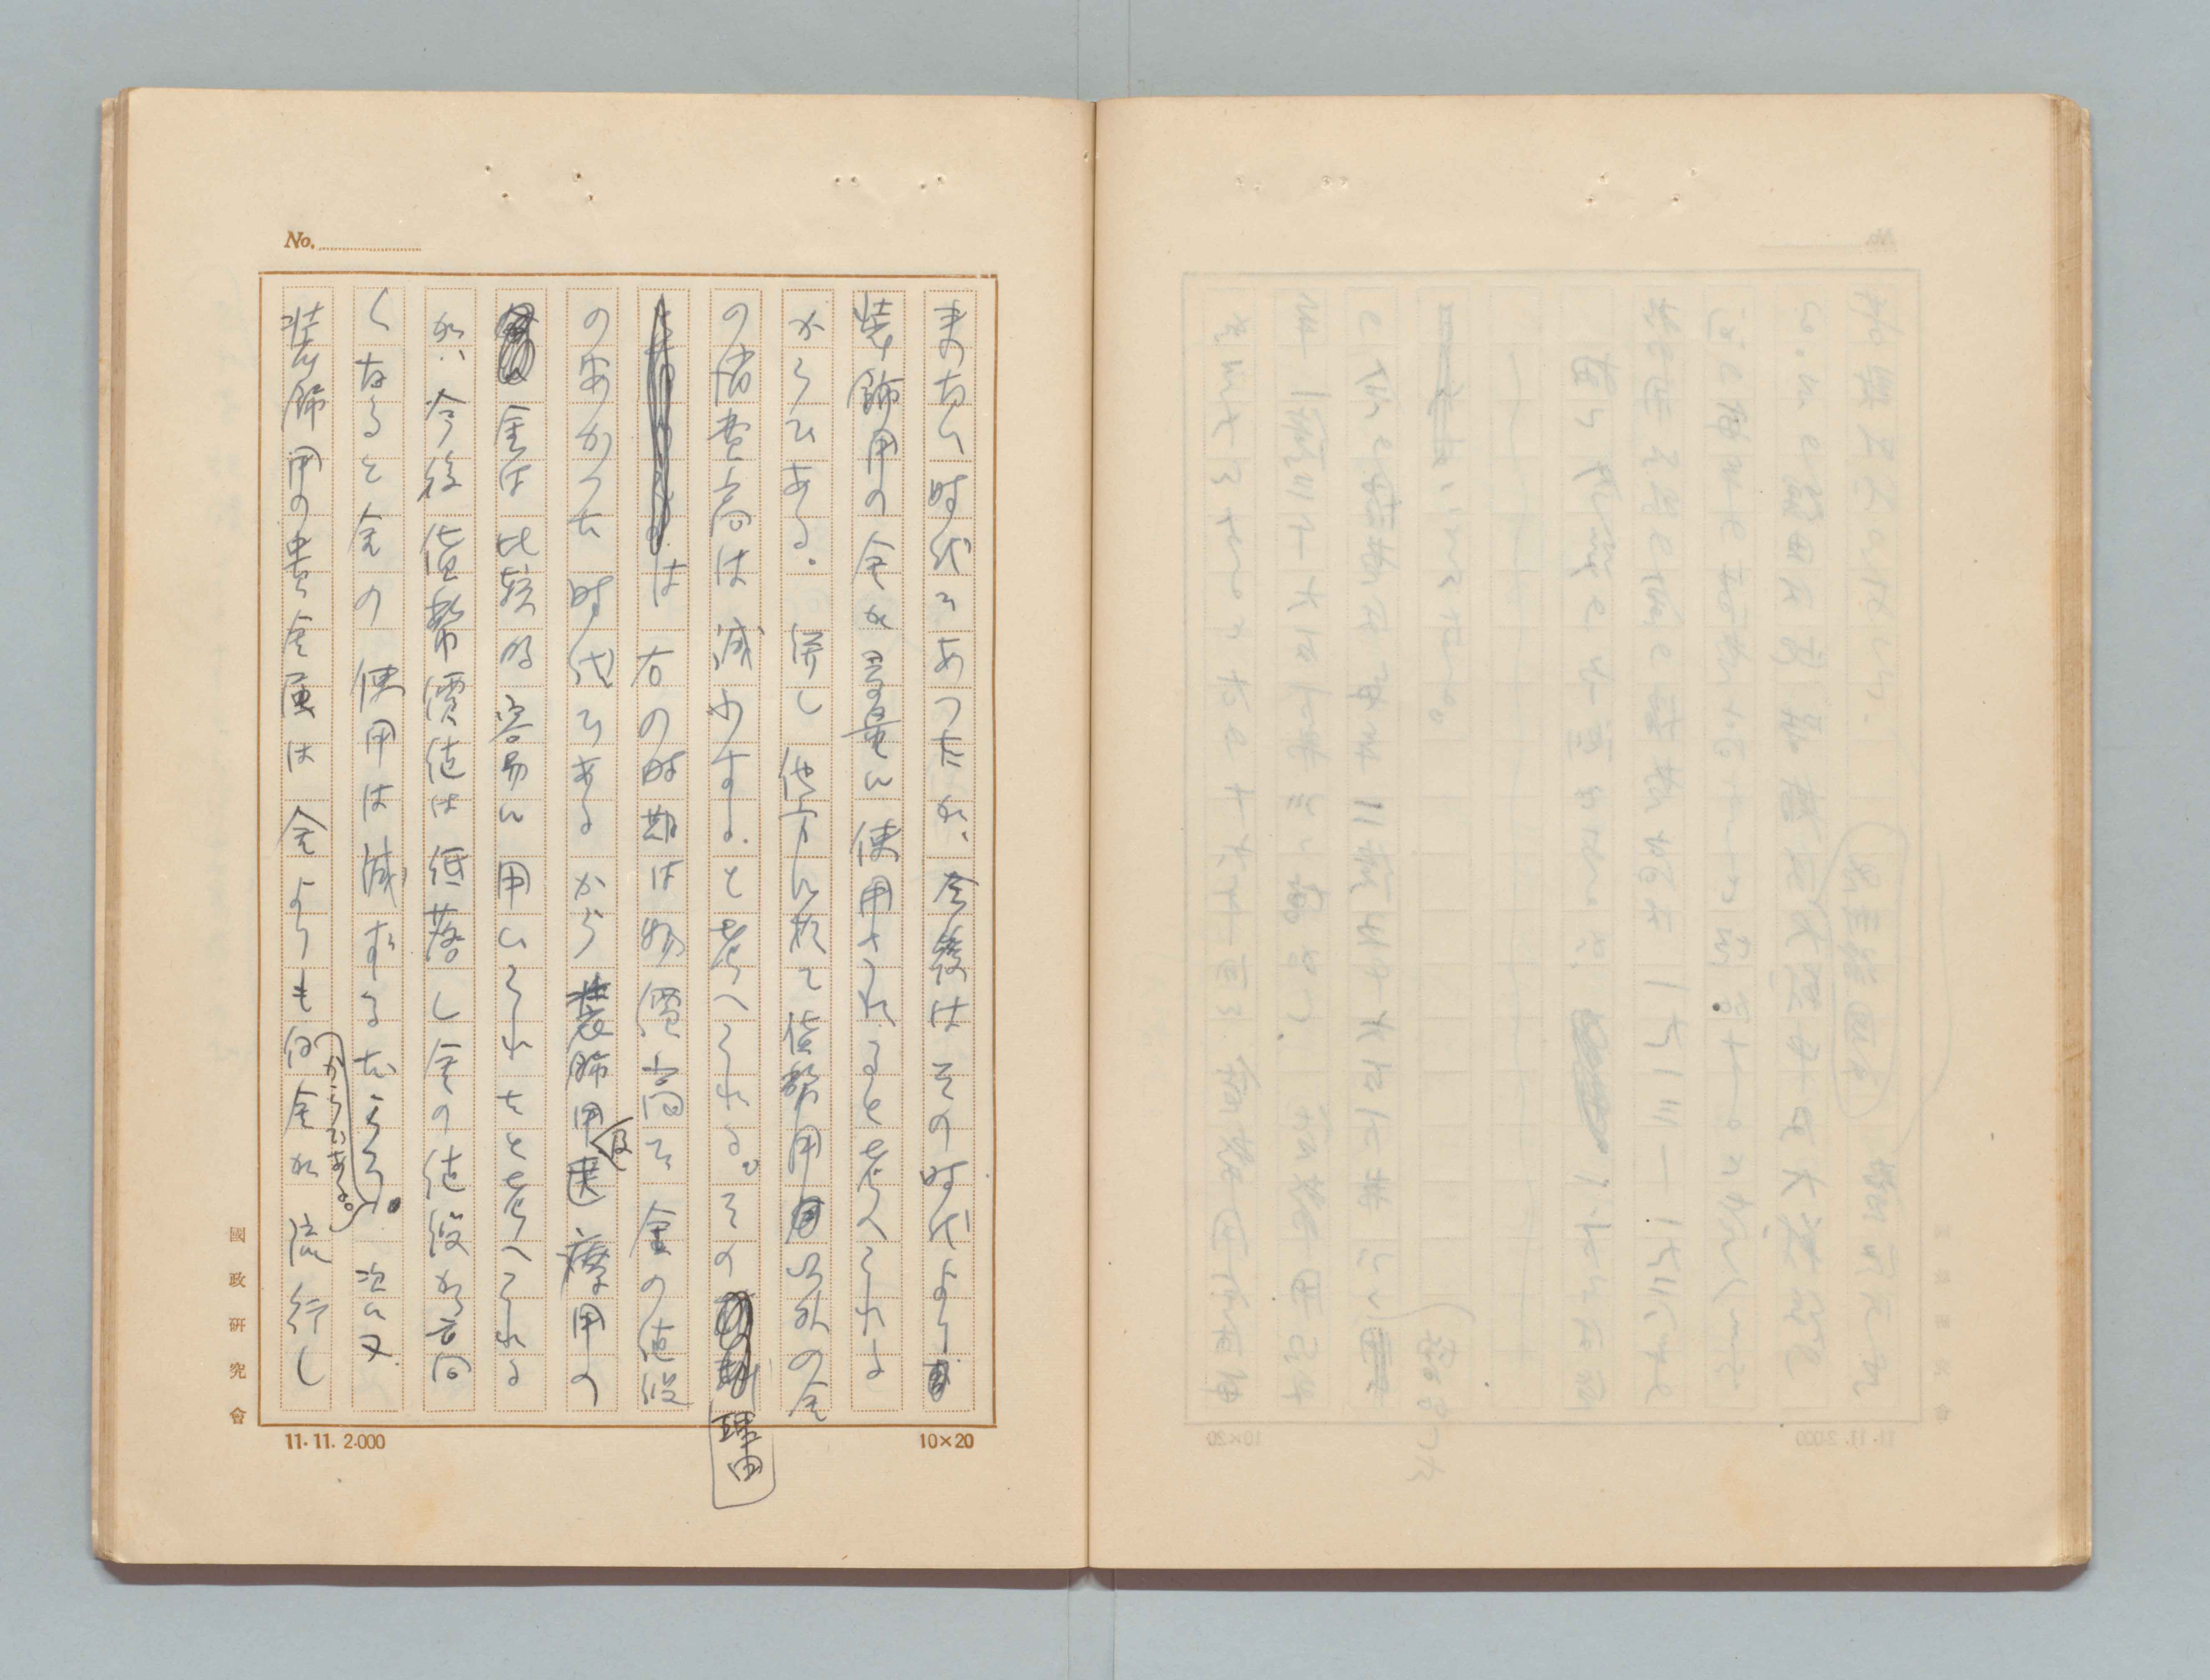 No.
来ない時代であつたが、今後はその時代より
装飾用の金が多量に使用されると考へられよ
からである。併し他方に於て貨幣用以外の金
の消費高は減少すると考へられる。その理由
は右の時期は物價高で金の値段
の安かつた時代であるから装飾用及医療用の
金は比較的容易に用いられたと考へられる
が、今後貨幣價値は低落し金の値段が高
くなると金の使用は減ずるだらうからである。次に又
装飾用の貴金属は金よりも白金が流行し
國政研究會
11.11. 2.000
10×20